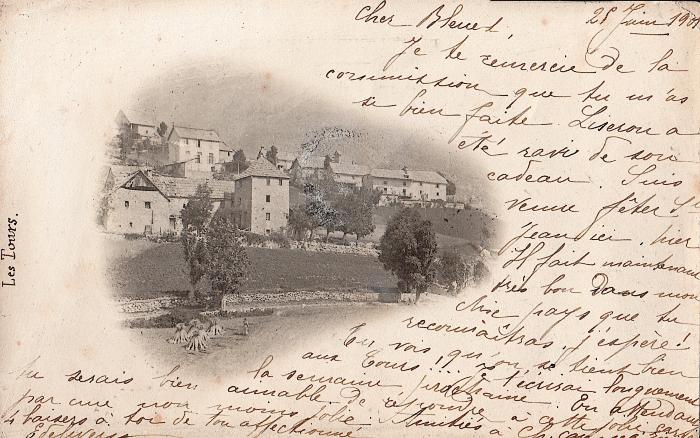 Cher Bleuet, 25 Juin 1901
Je te remercie de la
commission que tu m'as
si bien faite. Liseron a
été ravi de son
cadeau. Suis
venue fêter St
Jean ici, hier
Il fait maintenant
très bon dans mon
pays que tu
reconnaîtras, j'espère!
Tu vois, qu'on se tient bien
aux Tours! T'écrirai longuement
la semaine prochaine. En attendant
tu serais bien aimable de répondre à cette jolie carte
par une non moins jolie. Amitiés à
4 baisers à toi de ton affectionné
Edelweiss
Les Tours.